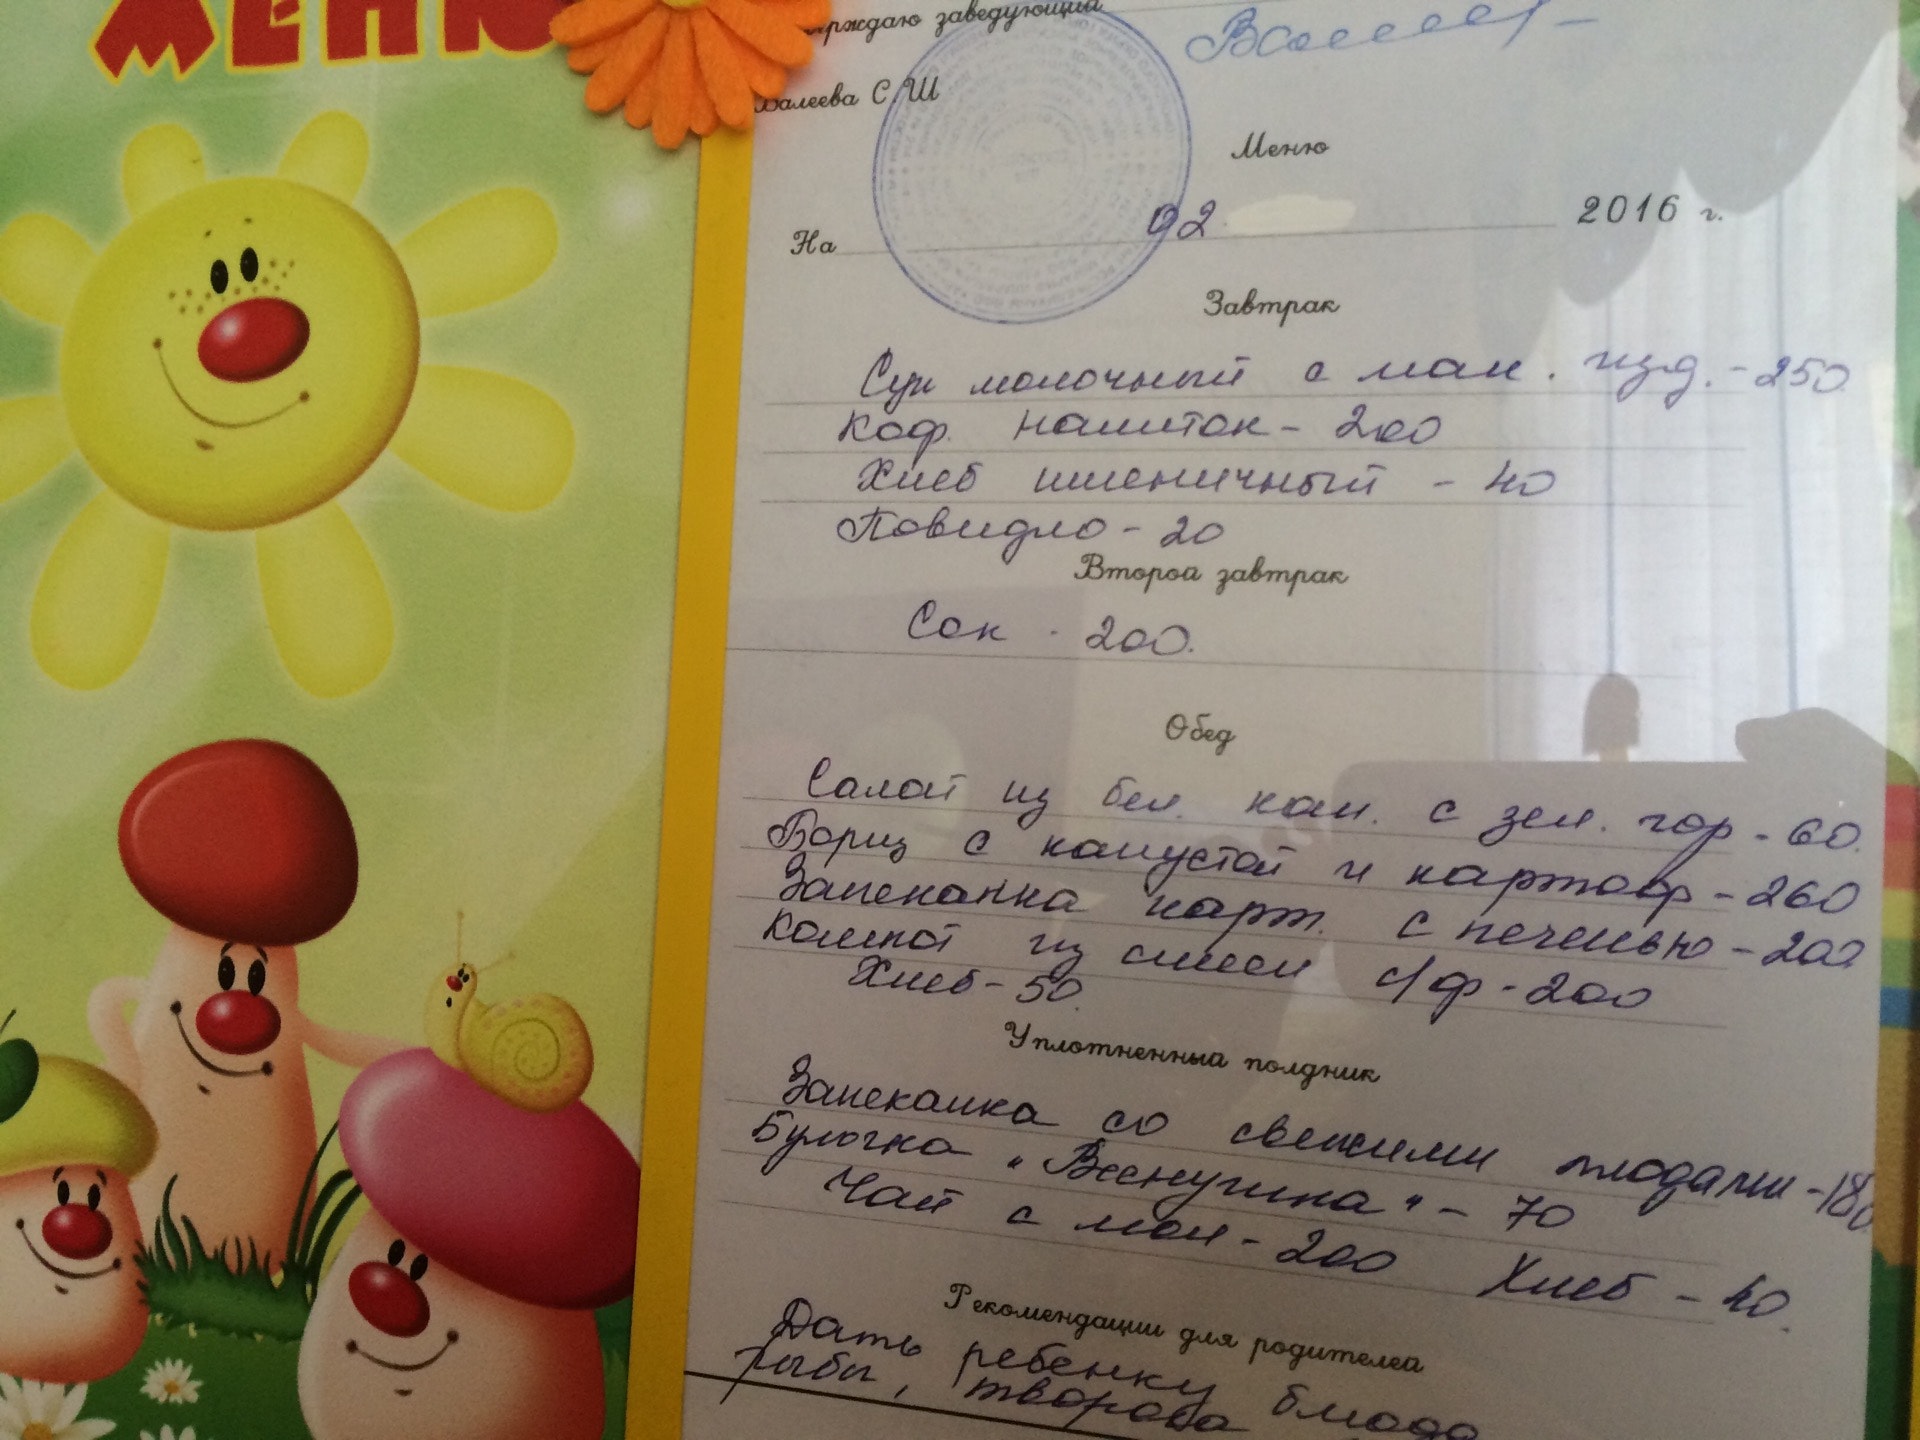 МЕНЮ
ерждаю заведующий
Валеева С.Ш
Меню
На 02. 2016 г.
Завтрак
Суп молочный с мак. изд. - 250.
Коф. напиток - 200
Хлеб пшеничный - 40
Повидло - 20
Второй завтрак
Сок - 200.
Обед
Салат из бел. кап. с зел. гор - 60.
Борщ с капустой и картоф - 260
Запеканка карт. с печенью - 200
Компот из смеси с/ф - 200
Хлеб - 50.
Уплотненный полдник
Запеканка со свежими плодами - 180
Булочка "Веснушка" - 70
Чай с мол - 200 Хлеб - 40.
Рекомендации для родителей
Дать ребенку блюда
рыбы, творога